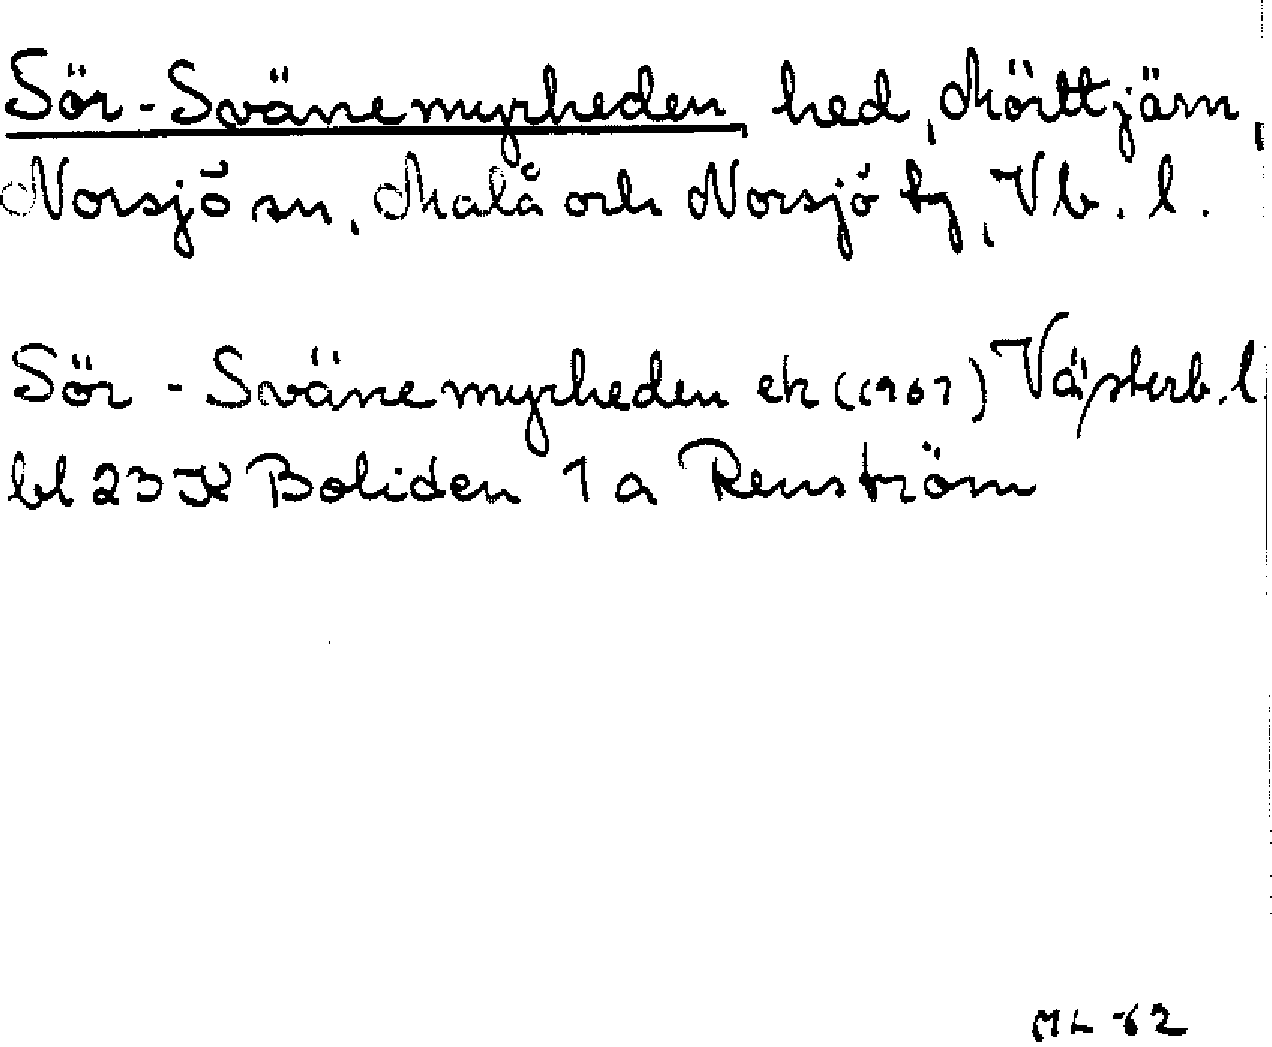 Sör-Svänemyrheden, hed, Mörttjärn,
Norsjö sn, Malå och Norsjö tg, Vb. l.
Sör-Svänemyrheden ek (1967) Västerb. l.
bl 23 K Boliden 1 a Renström
ML -62